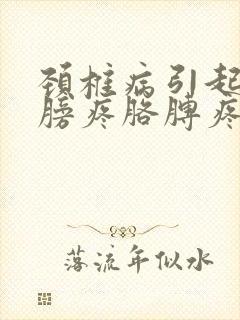 颈椎病引起
膀疼胳脾疼
落流年似水